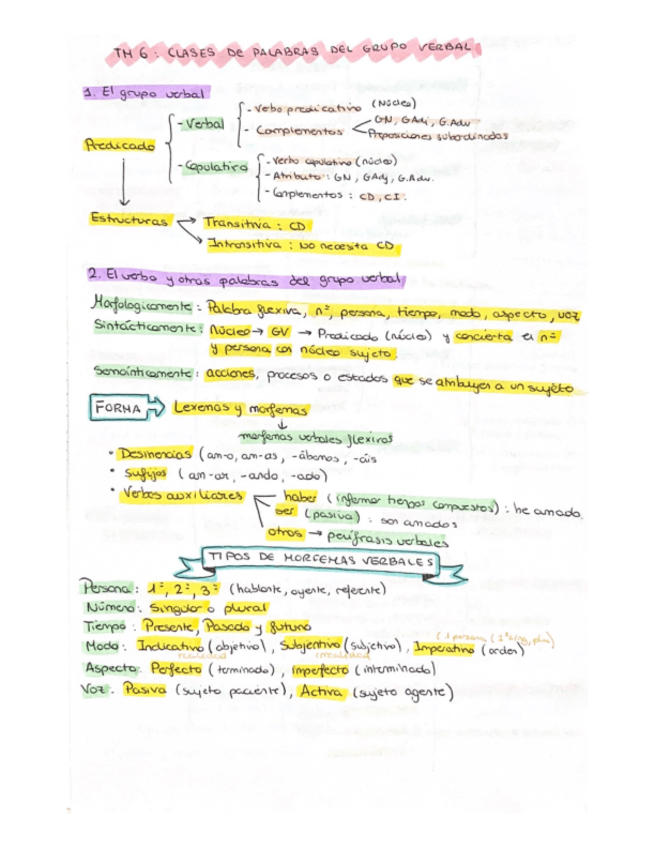 TM 6 : CLASES DE PALABRAS DEL GRUPO VERBAL
1. El grupo verbal
Predicado
- Verbal
- Verbo predicativo (Núcleo)
- Complementos
GN, GAdj, G.Adv
Proposiciones subordinadas
- Copulativo
- Verbo copulativo (núcleo)
- Atributo : GN, GAdj, G.Adv.
- Complementos : CD, CI.
Estructuras
Transitiva : CD
Intransitiva : No necesita CD
2. El verbo y otras palabras del grupo verbal
Morfologicamente : Palabra flexiva, nº, persona, tiempo, modo, aspecto, voz
Sintácticamente : Núcleo → GV → Predicado (núcleo) y concierta en nº
y persona con núcleo sujeto.
Semánticamente : acciones, procesos o estados que se atribuyen a un sujeto
FORMA Lexemas y morfemas
↓
morfemas verbales flexivos
• Desinencias (am-o, am-as, -ábamos, -áis
• Sufijos (am-ar, -ando, -ado)
• Verbos auxiliares
haber (informar tiempos compuestos) : he amado.
ser (pasiva) : son amados
otros → perífrasis verbales
TIPOS DE MORFEMAS VERBALES
Persona : 1ª, 2ª, 3ª (hablante, oyente, referente)
Número : Singular o plural
Tiempo : Presente, Pasado y futuro
Modo : Indicativo (objetivo), Subjuntivo (subjetivo), Imperativo (orden)
realidad
Aspecto : Perfecto (terminado), imperfecto (interminado)
Voz : Pasiva (sujeto paciente), Activa (sujeto agente)